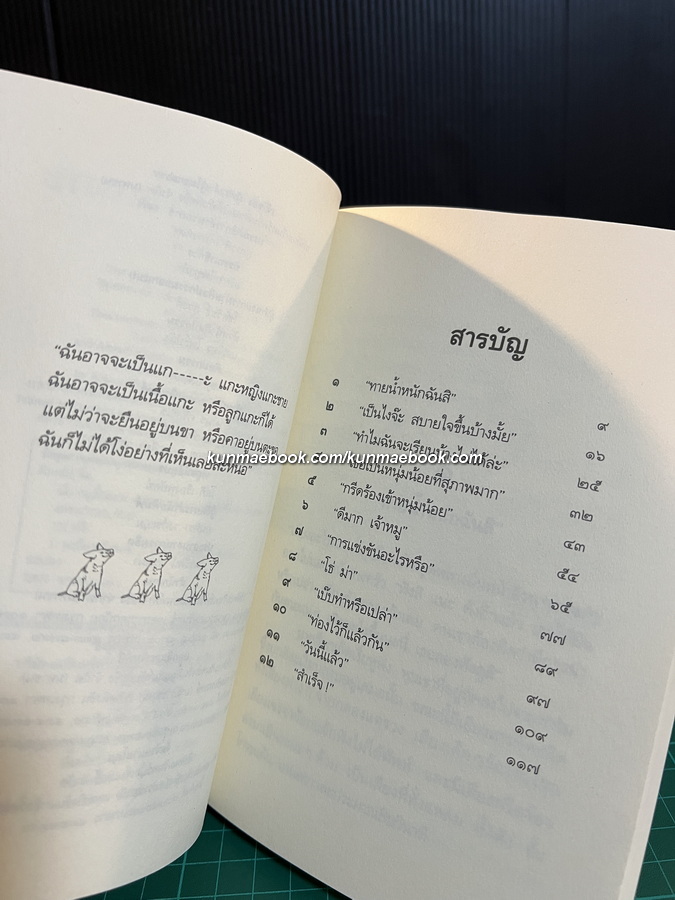 "ฉันอาจจะเป็นแก-----ะ แกะหญิงแกะชาย
ฉันอาจจะเป็นเนื้อแกะ หรือลูกแกะก็ได้
แต่ไม่ว่าจะยืนอยู่บนขา หรือคาอยู่บนตะขอ
ฉันก็ไม่ได้โง่อย่างที่เห็นเลยละหนอ"
kunmaebook.com/kunmaebook.com
สารบัญ
๑ "ทายน้ำหนักฉันสิ" ๙
๒ "เป็นไงจ๊ะ สบายใจขึ้นบ้างมั้ย" ๑๖
๓ "ทำไมฉันจะเรียนบ้างไม่ได้ล่ะ" ๒๕
เธอเป็นหนุ่มน้อยที่สุภาพมาก" ๓๒
๕ "กรีดร้องเข้าหนุ่มน้อย" ๔๓
๖ "ดีมาก เจ้าหมู" ๕๔
๗ "การแข่งขันอะไรหรือ" ๖๕
๘ "โธ่ ม่า" ๗๗
๙ "เบ๊บทำหรือเปล่า" ๘๙
๑๐ "ท่องไว้ก็แล้วกัน" ๙๗
๑๑ "วันนี้แล้ว" ๑๐๙
๑๒ "สำเร็จ!" ๑๑๗